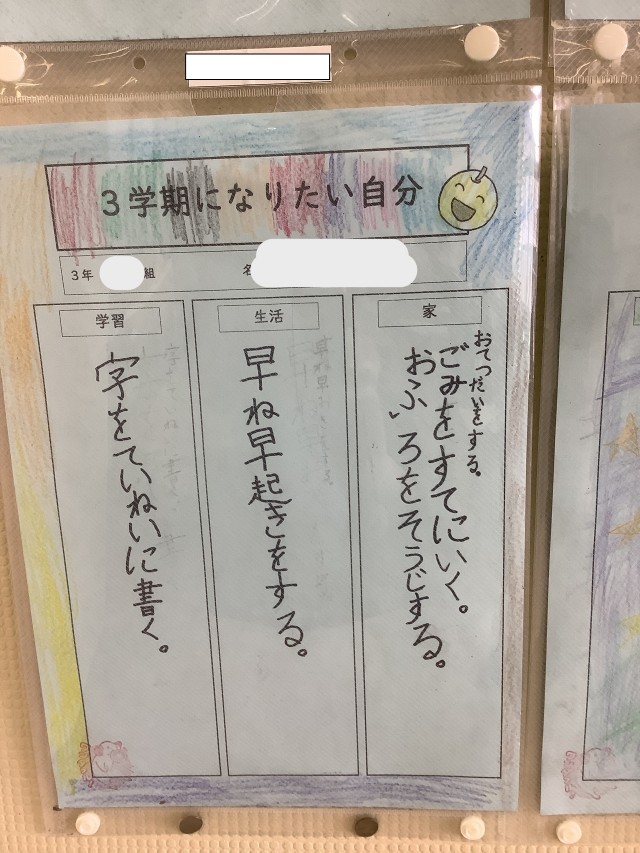 3学期になりたい自分
3年
組
名
家
おてつだいをする。
ごみをすてにいく。
おふろをそうじする。
生活
早ね早起きをする。
学習
字をていねいに書く。